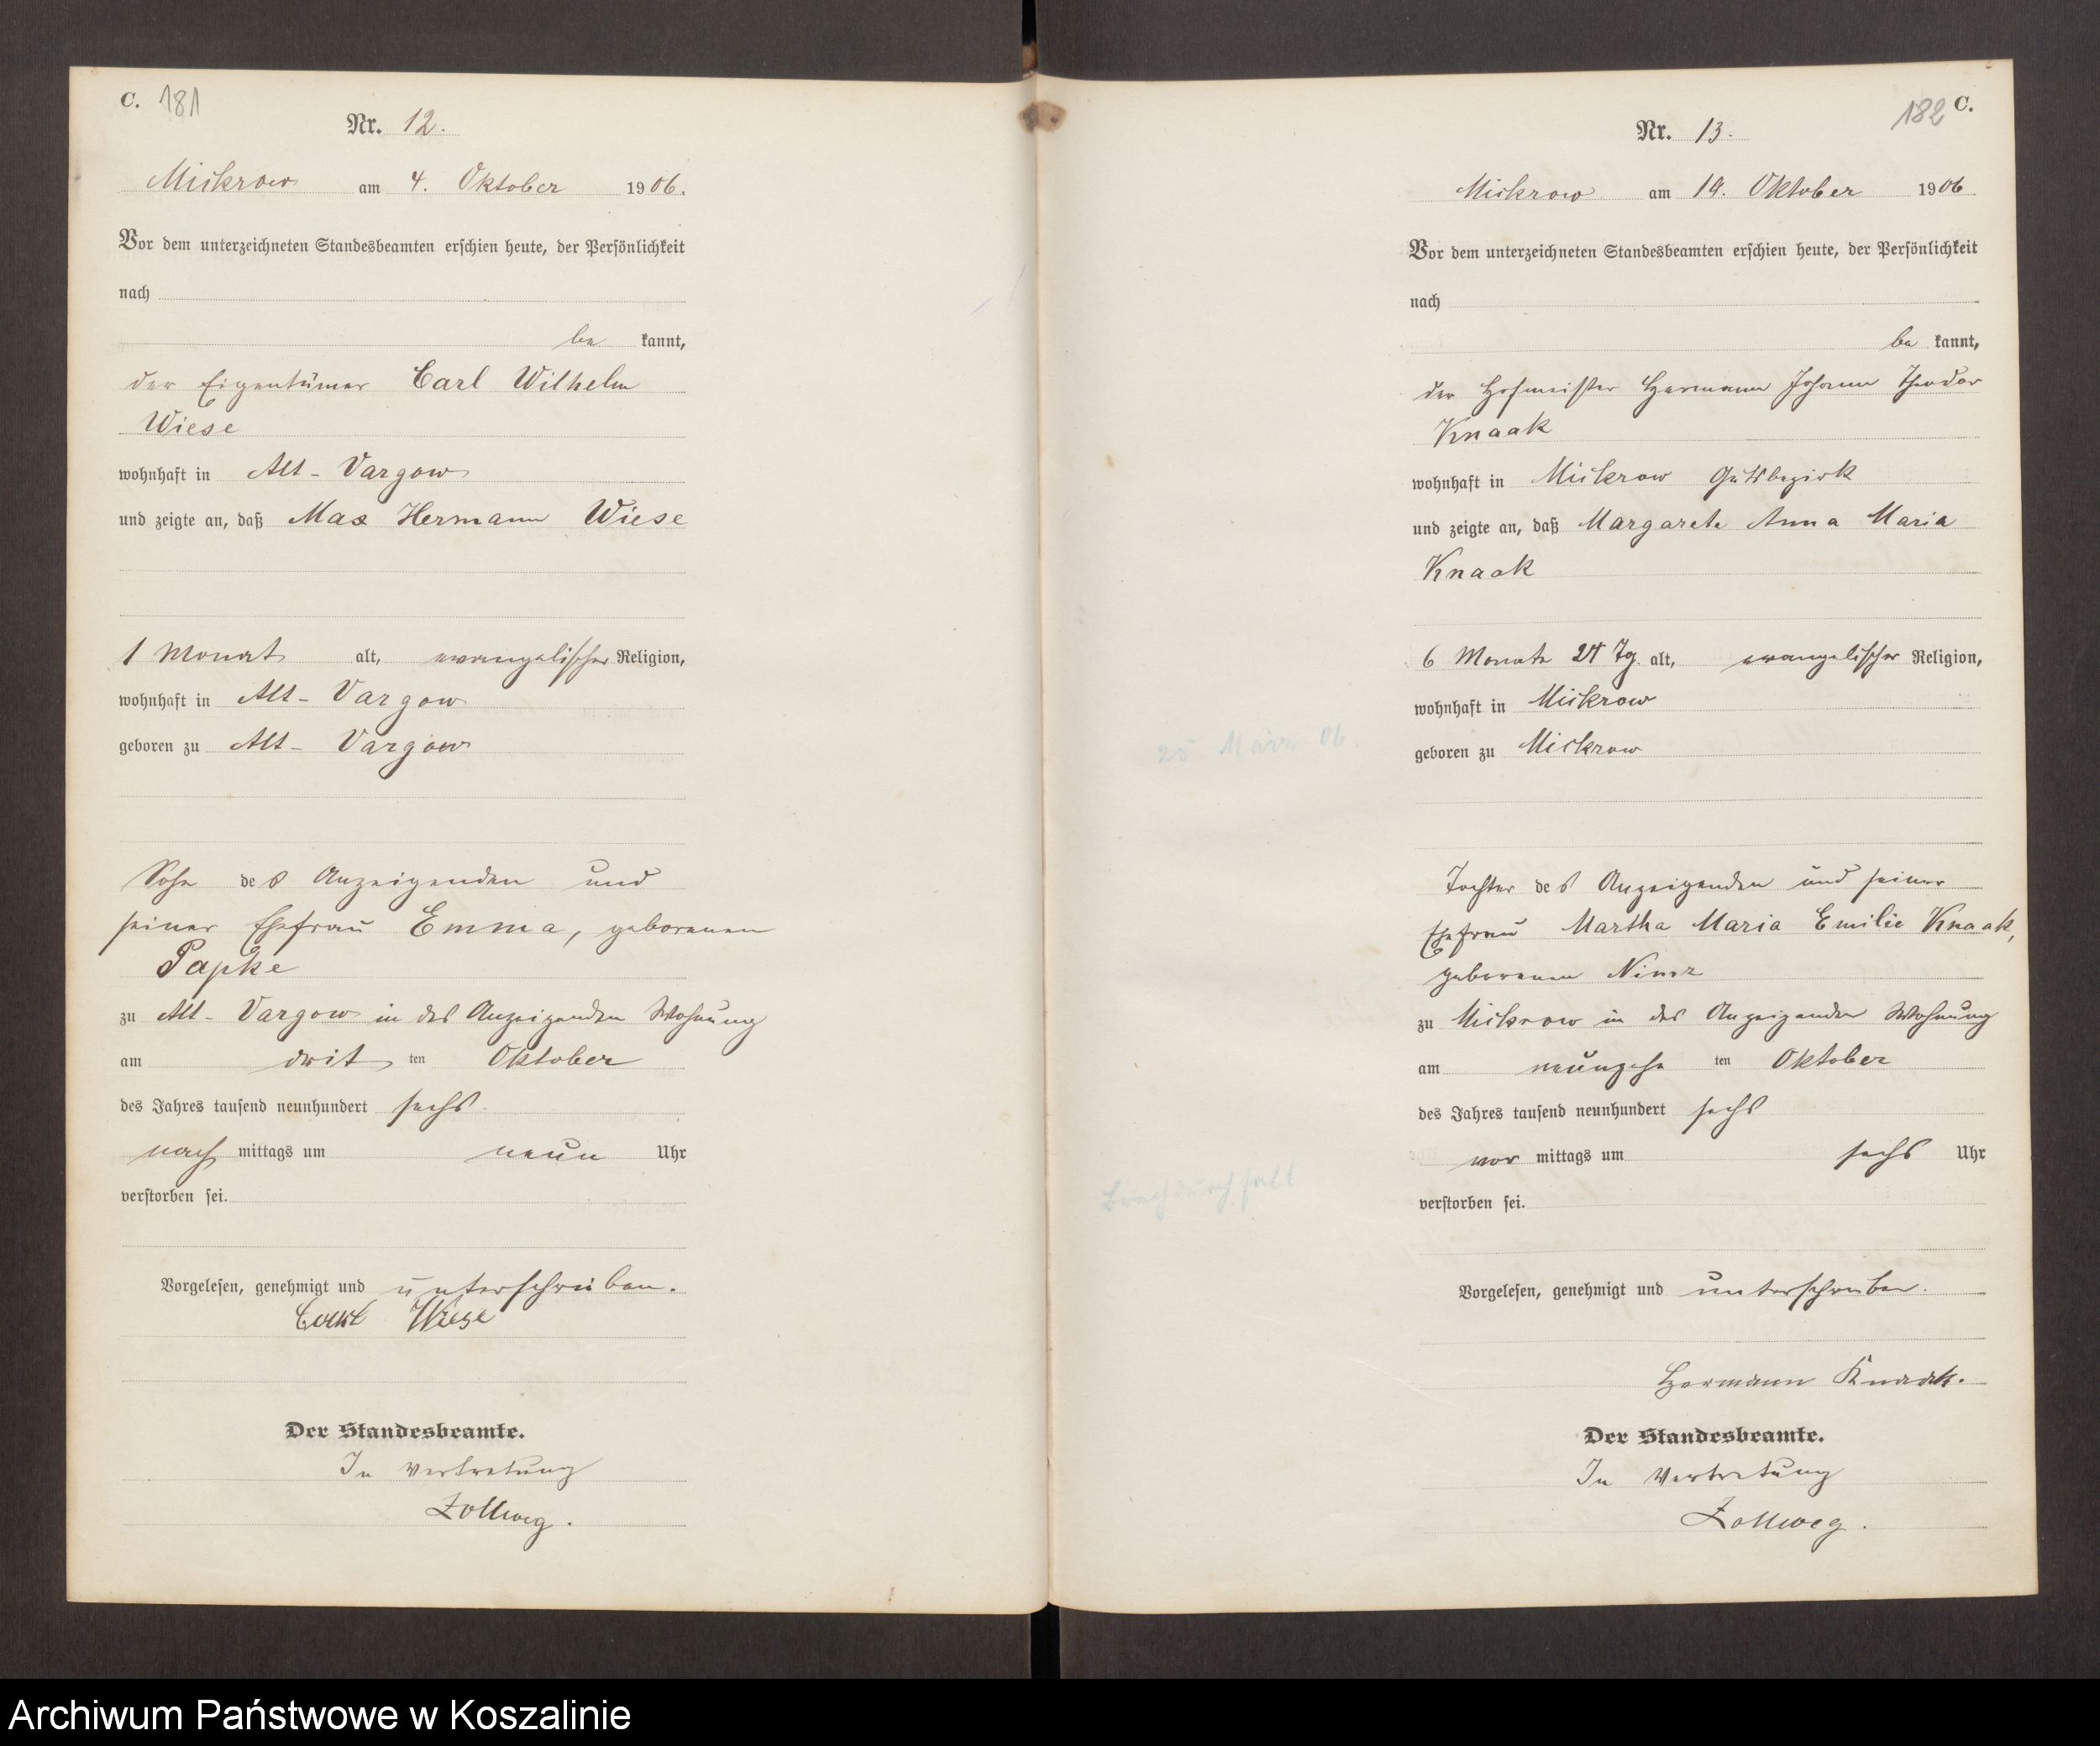 C. 181
Nr. 12.
Mickrow am 4. Oktober 1906.
Vor dem unterzeichneten Standesbeamten erschien heute, der Persönlichkeit
nach
be kannt,
der Eigentümer Carl Wilhelm
Wiese
wohnhaft in Alt-Vargow
und zeigte an, daß Max Hermann Wiese
1 Monat alt, evangelischer Religion,
wohnhaft in Alt-Vargow
geboren zu Alt-Vargow
Sohn des Anzeigenden und
seiner Ehefrau Emma, geborenen
Papke
zu Alt-Vargow in des Anzeigenden Wohnung
am drit ten Oktober
des Jahres tausend neunhundert sechs
nach mittags um neun Uhr
verstorben sei.
Vorgelesen, genehmigt und unterschrieben.
Carl Wiese
Der Standesbeamte.
In Vertretung
Zollweg.
182 C.
Nr. 13.
Mickrow am 19. Oktober 1906
Vor dem unterzeichneten Standesbeamten erschien heute, der Persönlichkeit
nach
be kannt,
der Hofmeister Hermann Johann Theodor
Knaak
wohnhaft in Mickrow Gutsbezirk
und zeigte an, daß Margarete Anna Maria
Knaak
6 Monate Tg. alt, evangelischer Religion,
wohnhaft in Mickrow
25. März 06.
geboren zu Mickrow
Tochter des Anzeigenden und seiner
Ehefrau Martha Maria Emilie Knaak,
geborenen
zu Mickrow in des Anzeigenden Wohnung
am neunzehn ten Oktober
des Jahres tausend neunhundert sechs
vor mittags um sechs Uhr
Brechdurchfall
verstorben sei.
Vorgelesen, genehmigt und unterschrieben.
Hermann Knaak.
Der Standesbeamte.
In Vertretung
Zollweg.
Archiwum Państwowe w Koszalinie